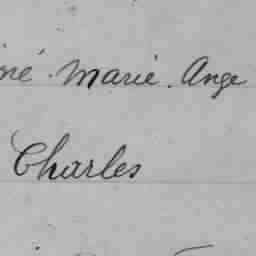 né. Marie. Ange
Charles